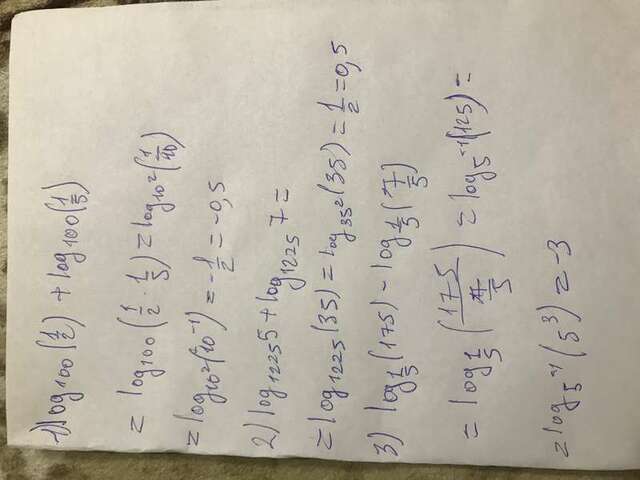 1) log₁₀₀(1/2) + log₁₀₀(1/5)
= log₁₀₀(1/2 · 1/5) = log₁₀²(1/10)
= log₁₀²(10⁻¹) = -1/2 = -0,5
2) log₁₂₂₅5 + log₁₂₂₅7 =
= log₁₂₂₅(35) = log₃₅²(35) = 1/2 = 0,5
3) log_{1/5}(175) - log_{1/5}(7/5)
= log_{1/5}(175/(7/5)) = log_{5⁻¹}(125) =
= log_{5⁻¹}(5³) = -3